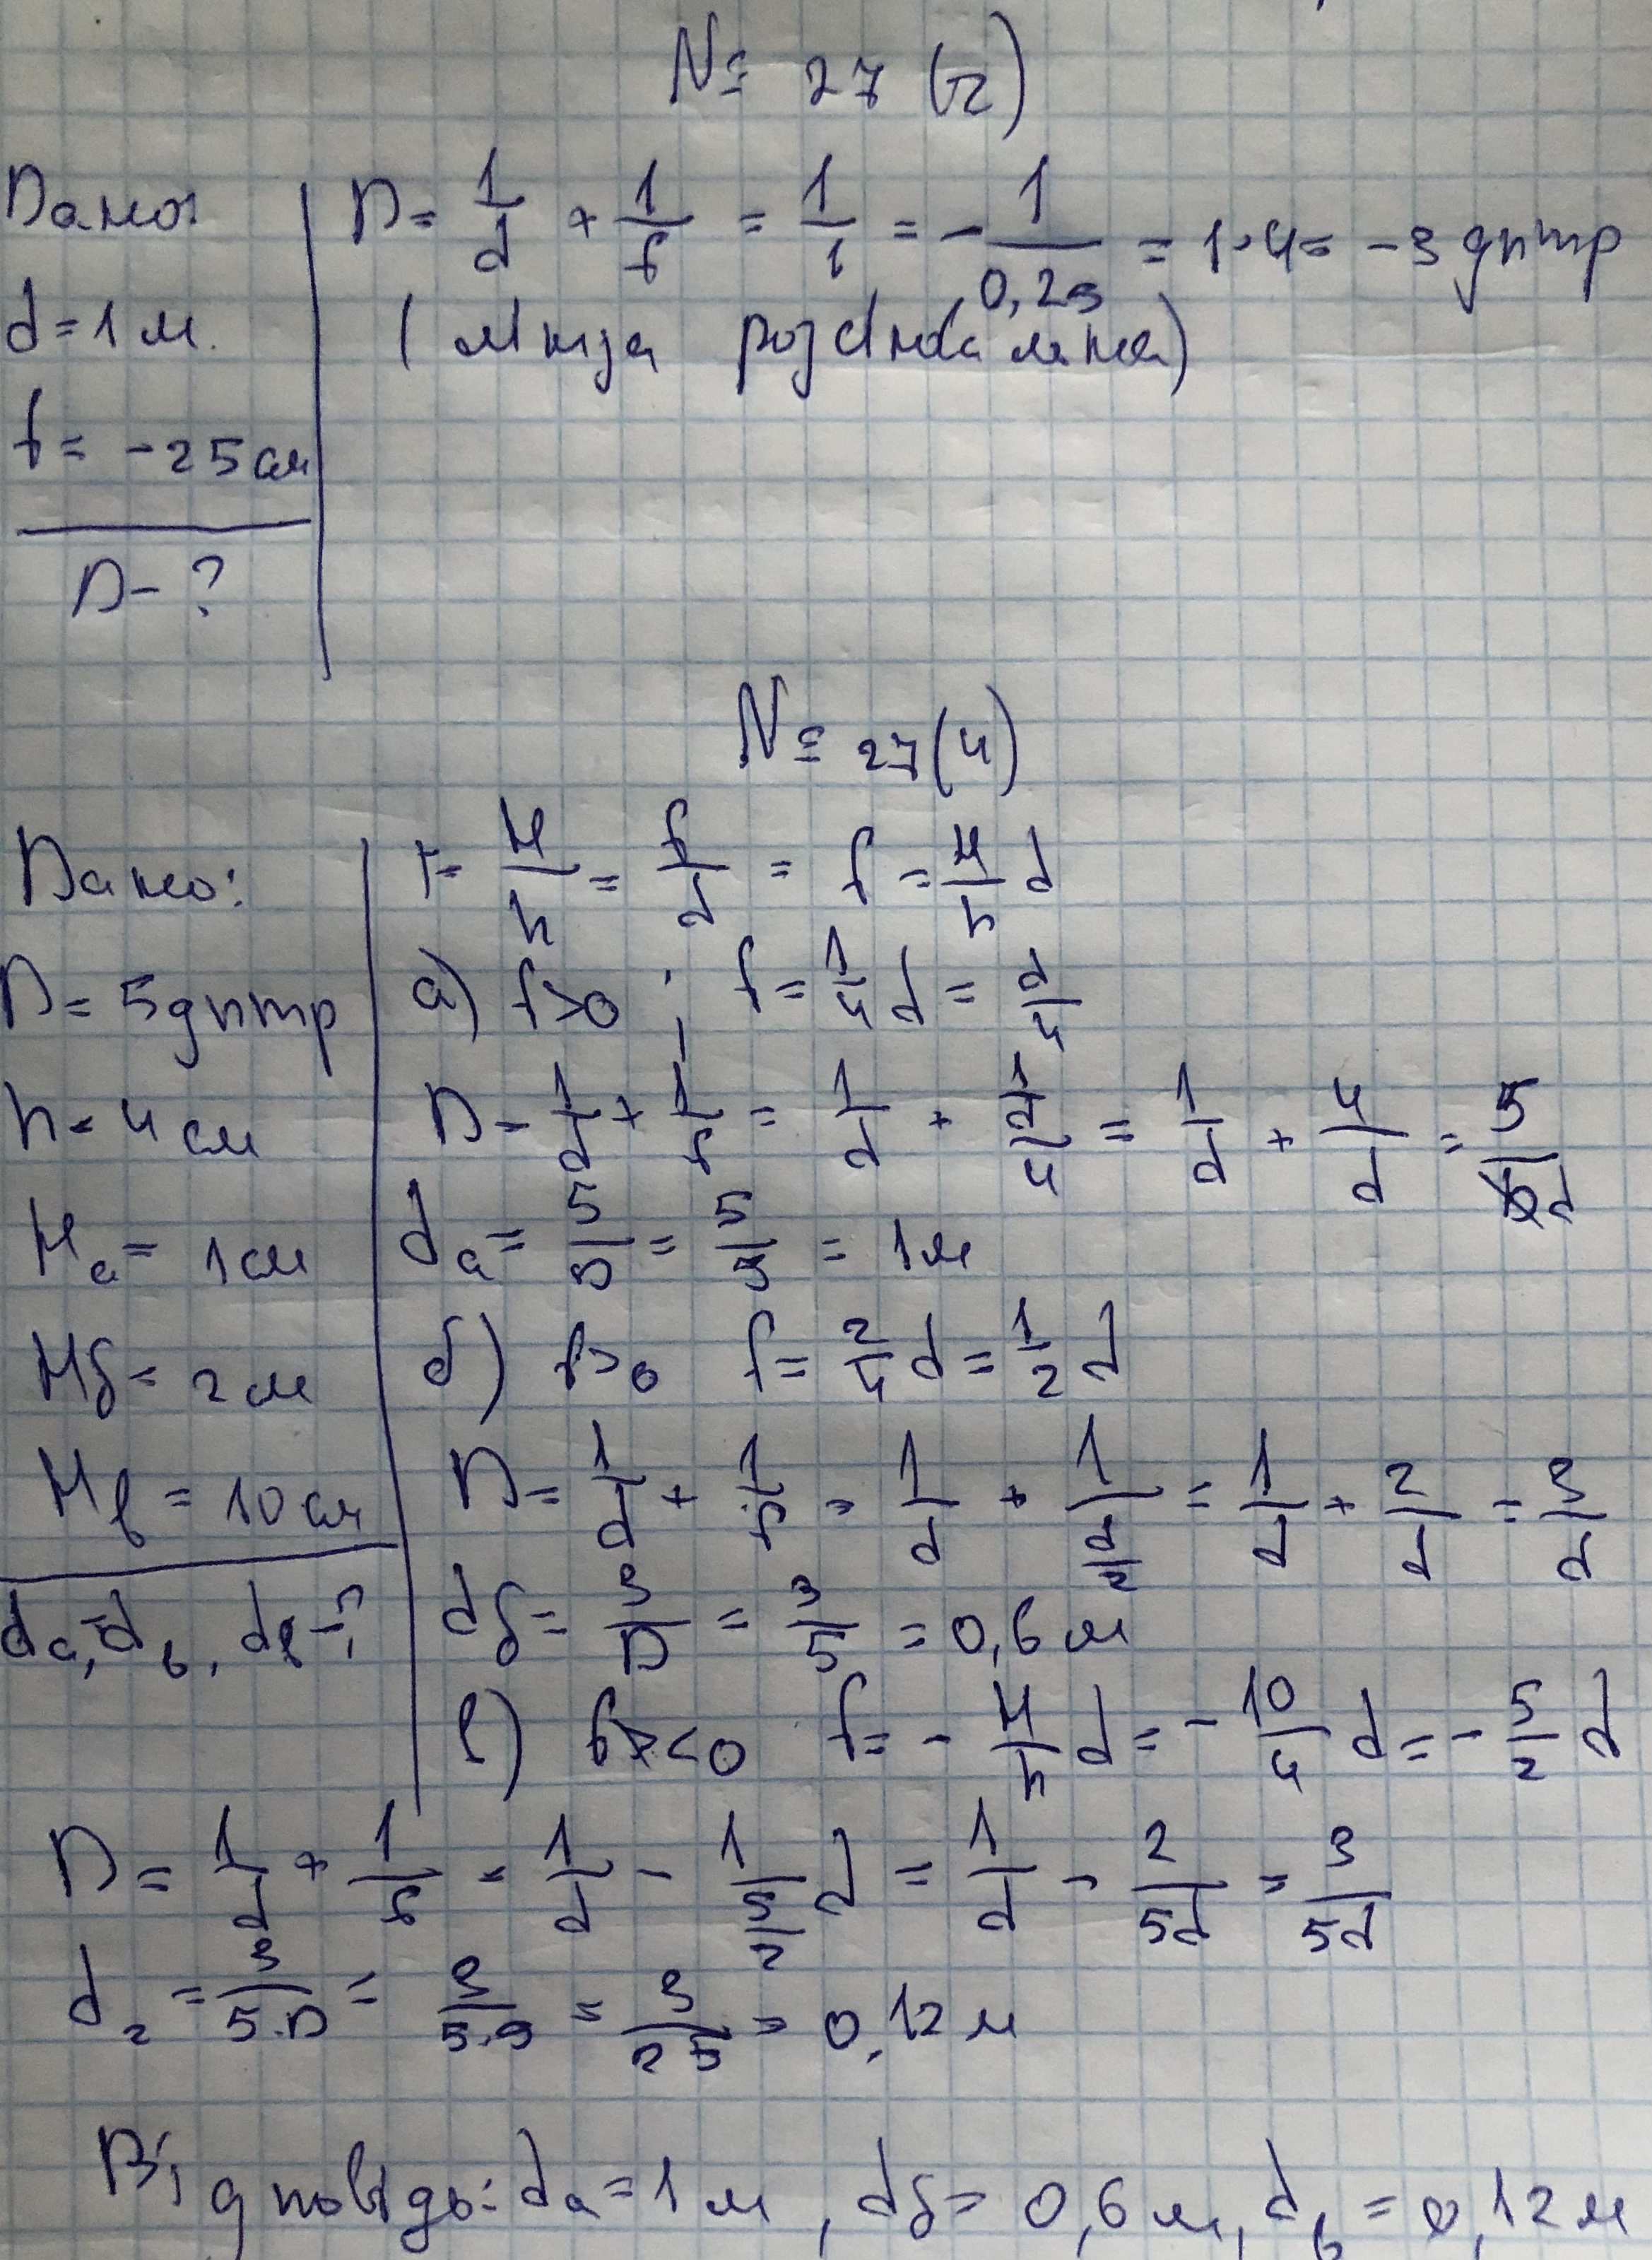 № 27 (2)
Дано:
d = 1 м.
f = -25 см
D - ?
D = 1/d + 1/f = 1/1 = - 1/0,25 = 1 - 4 = -3 дптр
(лінза розсіювальна)
№ 27 (4)
Дано:
D = 5 дптр
h = 4 см
Hа = 1 см
Hб = 2 см
Hв = 10 см
dа, dб, dв - ?
Г = H/h = f/d = f = H/h d
а) f > 0 ; f = 1/4 d = d/4
D = 1/d + 1/f = 1/d + 1/(d/4) = 1/d + 4/d = 5/d
dа = 5/D = 5/5 = 1 м
б) f > 0 f = 2/4 d = 1/2 d
D = 1/d + 1/f = 1/d + 1/(d/2) = 1/d + 2/d = 3/d
dб = 3/D = 3/5 = 0,6 м
в) f < 0 f = - H/h d = - 10/4 d = - 5/2 d
D = 1/d + 1/f = 1/d - 1/(5/2) d = 1/d - 2/5d = 3/5d
d2 = 3/5·D = 3/5·5 = 3/25 = 0,12 м
Відповідь: dа = 1 м, dб = 0,6 м, dв = 0,12 м